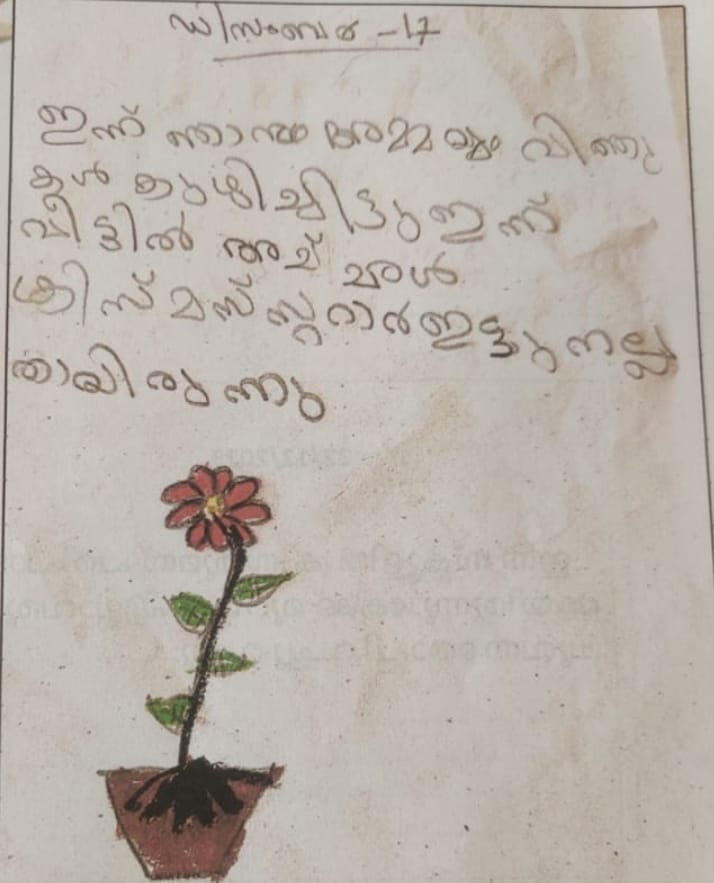 ഡിസംബർ - 17
ഇന്ന് ഞാനും അമ്മയും വിത്തു
കൾ കുഴിച്ചിട്ടു ഇന്ന്
വീട്ടിൽ അച്ചൻ
ക്രിസ്മസ് സ്റ്റാർ ഇട്ടു നല്ല
തായിരുന്നു